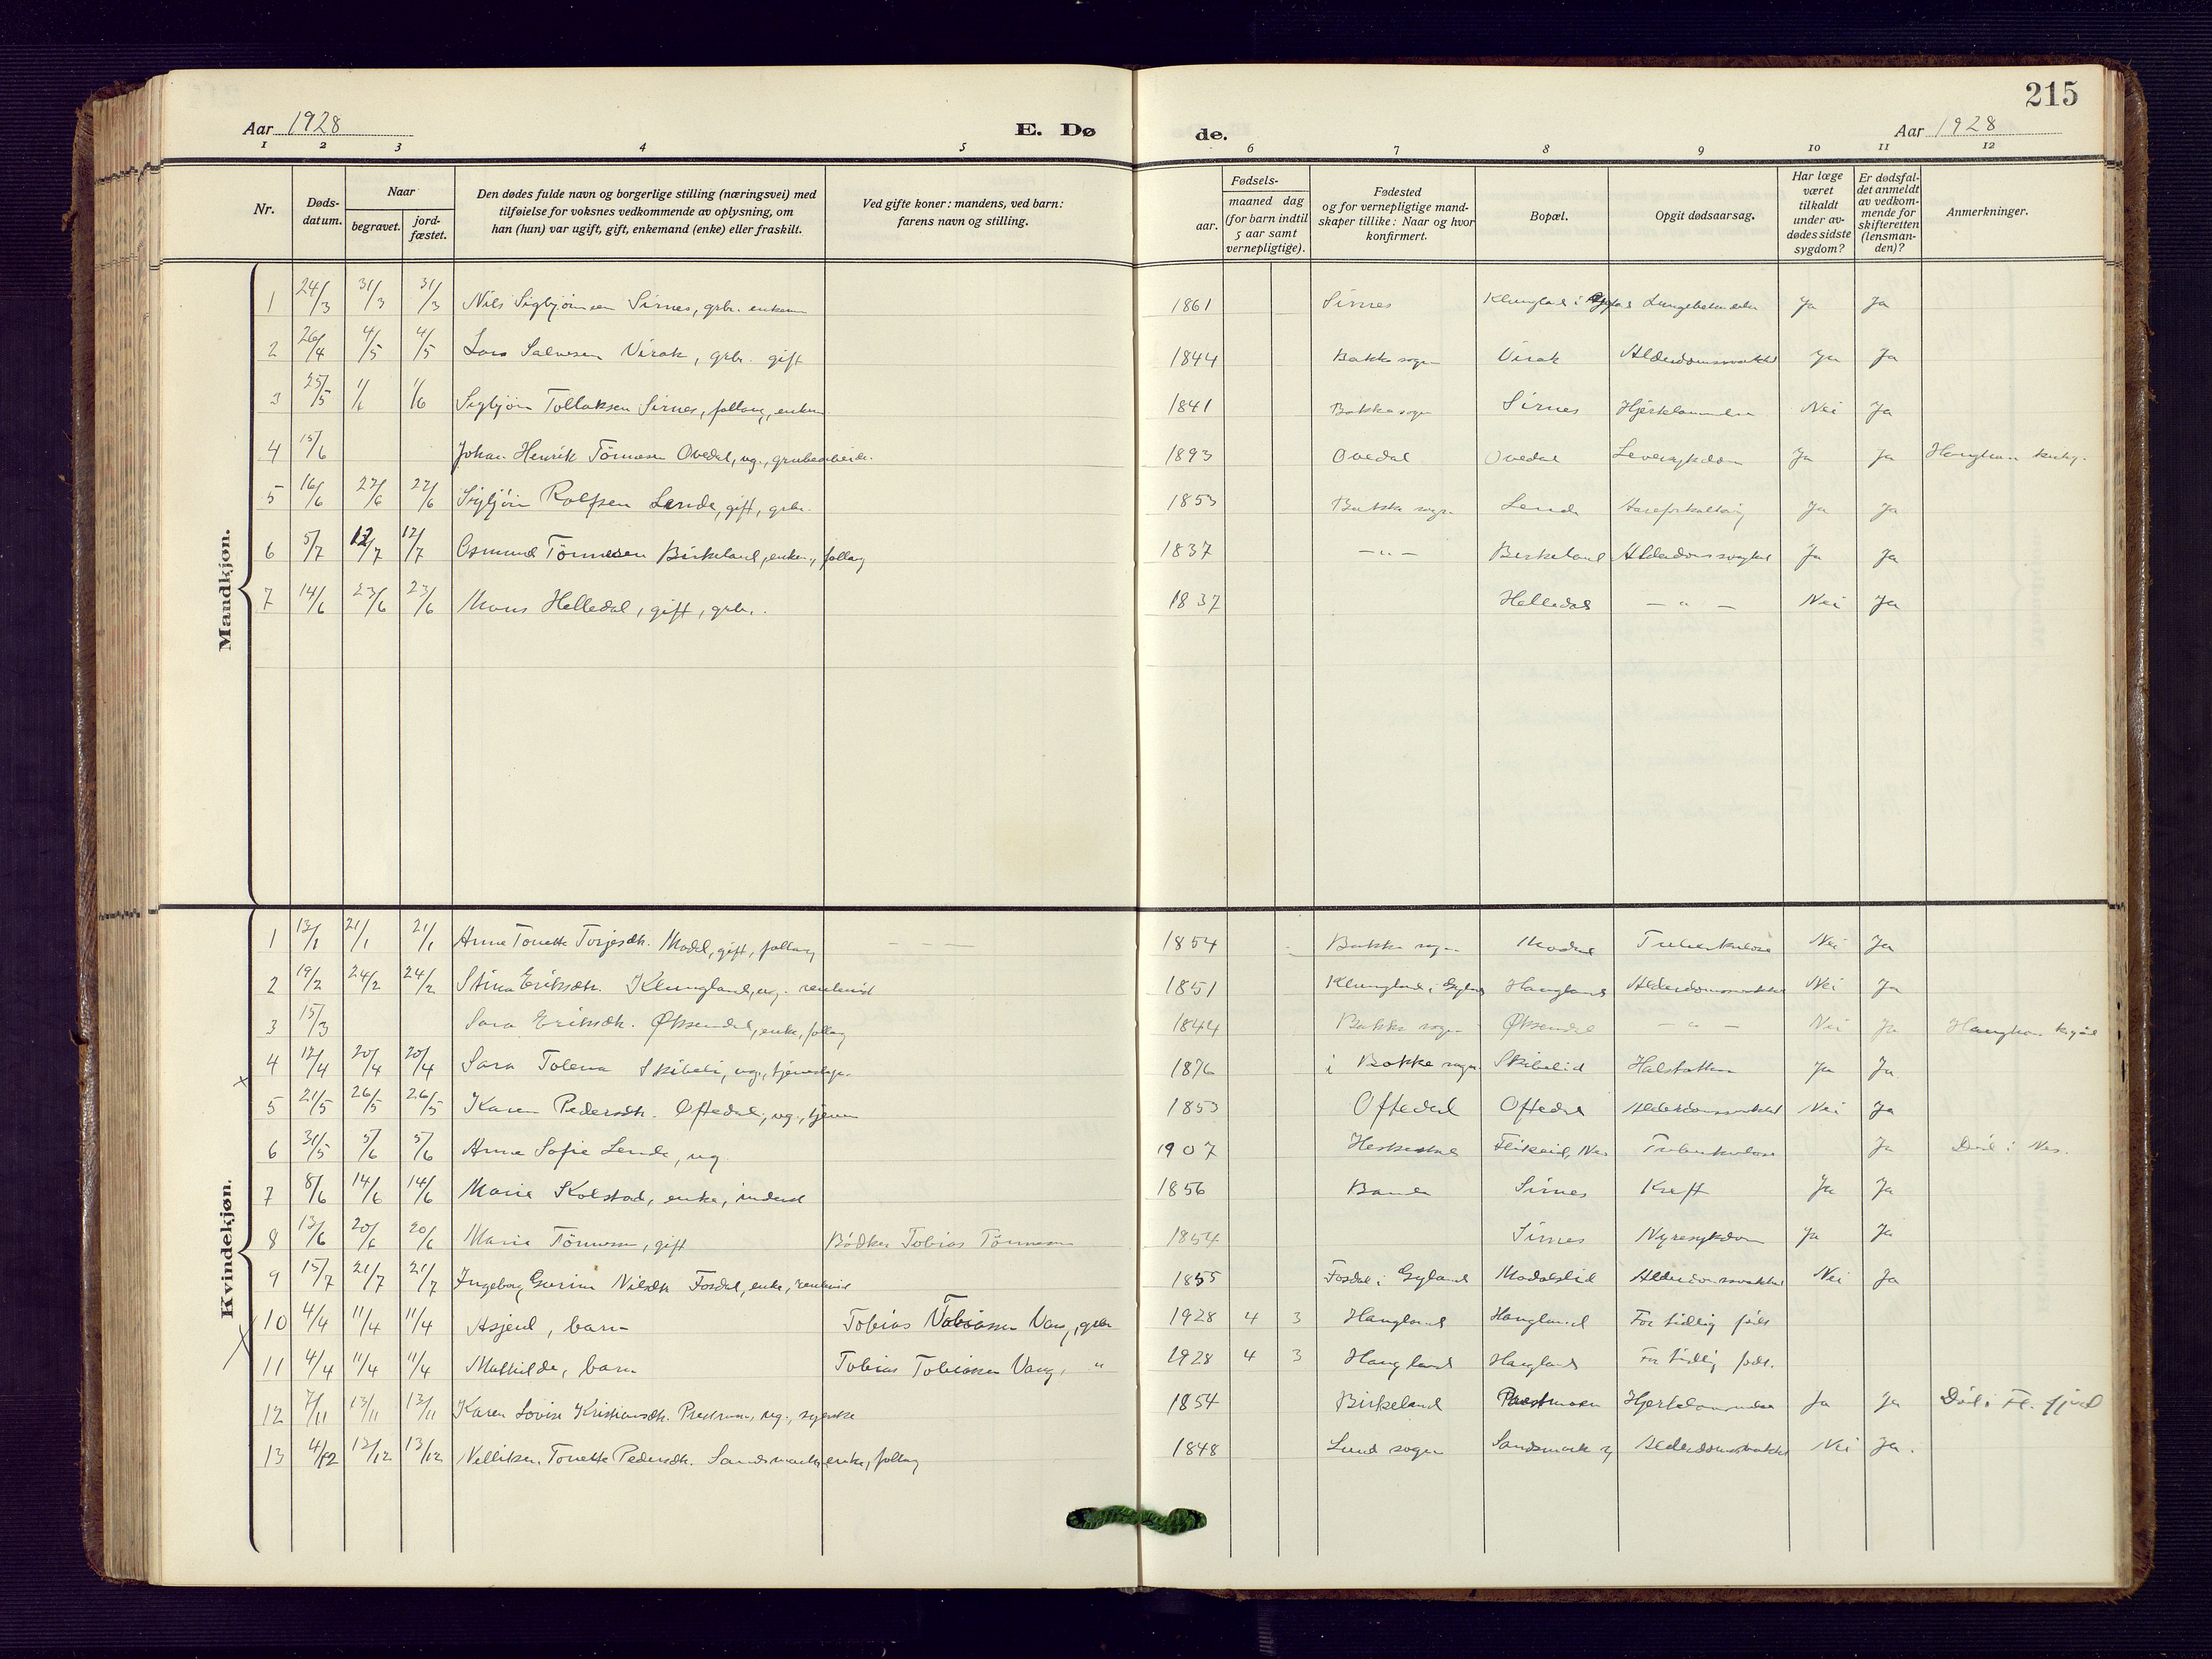 215
Aar 1928
E. Dø
de.
Aar 1928
1 2 3 4 5 6 7 8 9 10 11 12
Nr.
Døds-
datum.
Naar
begravet.
jord-
fæstet.
Den dødes fulde navn og borgerlige stilling (næringsvei) med
tilføielse for voksnes vedkommende av oplysning, om
han (hun) var ugift, gift, enkemand (enke) eller fraskilt.
Ved gifte koner: mandens, ved barn:
farens navn og stilling.
Fødsels-
aar.
maaned dag
(for barn indtil
5 aar samt
vernepligtige).
Fødested
og for vernepligtige mand-
skaper tillike: Naar og hvor
konfirmert.
Bopæl.
Opgit dødsaarsag.
Har læge
været
tilkaldt
under av-
dødes sidste
sygdom?
Er dødsfal-
det anmeldt
av vedkom-
mende for
skifteretten
(lensman-
den)?
Anmerkninger.
Maandkjøn.
1 24/3 31/3 31/3 Nils Sigbjörnsen Sirnes, grbr. enkem 1861 Sirnes Klungland i Ja Ja
2 26/4 4/5 4/5 Lars Salvesen Virak, grbr. gift 1844 Bakke sogn Virak Alderdomssvakhet Ja Ja
3 25/5 1/6 1/6 Sigbjörn Tollaksen Sirnes, follaug, enkem 1841 Bakke sogn Sirnes Hjertelammelse Nei Ja
4 15/6 Johan Henrik Tönnesen Ovedal, ug., grubearbeider. 1893 Ovedal Ovedal Leversykdom Ja Ja
5 16/6 22/6 22/6 Sigbjörn Rolfsen Lende, gift, grbr. 1853 Bakke sogn Lende Aareforkalkning Ja Ja
6 5/7 12/7 12/7 Osmund Tönnesen Birkeland, enkem., follaug 1837 — " — Birkeland Alderdomssvaghet Ja Ja
7 14/6 23/6 23/6 Mons Helledal, gift, grbr. 1837 Helledal — " — Nei Ja
Kvindekjøn.
1 13/1 21/1 21/1 Anne Tonette Torjesdtr. Modal, gift, follaug — — — 1854 Bakke sogn Modal Tuberkulose Nei Ja
2 19/2 24/2 24/2 Stina Eriksdtr. Klungland, ug. 1851 Klungland i Gyland Haugland Alderdomssvakhet Nei Ja
3 15/3 Sara Eriksdtr. Øksendal, enke, follaug 1844 Bakke sogn Øksendal — " — Nei Ja
4 12/4 20/4 20/4 Sara Tolena Skibeli, ug., 1876 i Bakke sogn Skibelid Ja Ja
5 21/5 26/5 26/5 Karen Pedersdtr. Oftedal, ug., tjener 1853 Oftedal Oftedal Alderdomssvakhet Nei Ja
6 31/5 5/6 5/6 Anne Sofie Lende, ug 1907 Heskestad Flikeid, Nes Tuberkulose Ja Död i Nes.
7 8/6 14/6 14/6 Marie Kolstad, enke, 1856 Sirnes Kreft Ja Ja
8 13/6 20/6 20/6 Maria Tönnesen, gift Bödker Tobias Tönnesen 1854 Sirnes Nyresykdom Ja Ja
9 15/7 21/7 21/7 Ingeborg Gurine Nilsdtr Fosdal, enke, 1855 Fosdal i Gyland Modalslid Alderdomssvakhet Nei Ja
10 4/4 11/4 11/4 Asjerd, barn Tobias Tobiassen Vang, grbr 1928 4 3 Haugland Haugland For tidlig född
11 4/4 11/4 11/4 Mathilde, barn Tobias Tobiassen Vang, " 1928 4 3 Haugland Haugland For tidlig född.
12 7/11 13/11 13/11 Karen Lovise Kristiansdtr. ug., syerske 1854 Birkeland Hjertelammelse Ja Ja Död i Fl. fjord
13 4/12 13/12 13/12 Tonette Pedersdtr. Sandsmark, enke, follaug 1848 Lund sogn Sandsmark Alderdomssvakhet Nei Ja.